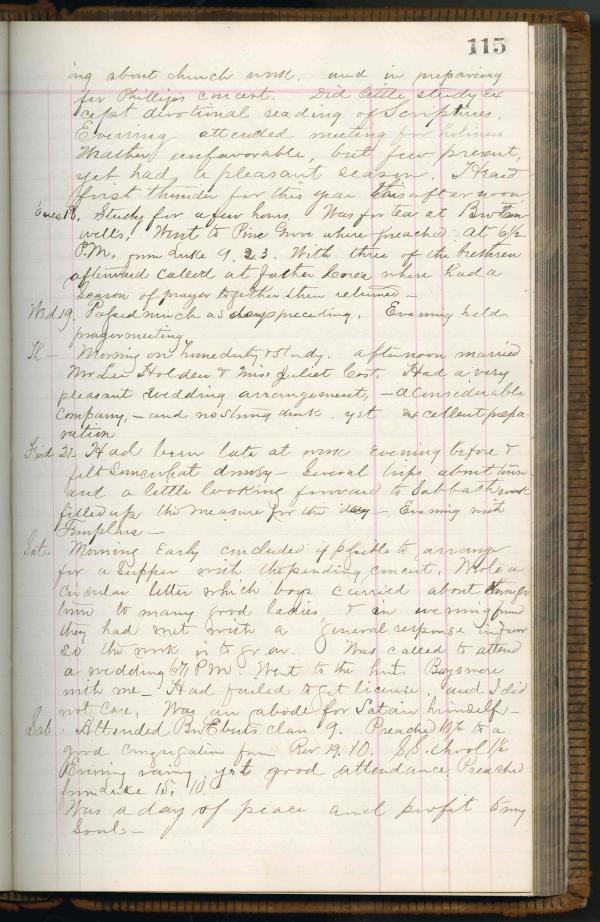 115
ing about church work, and in preparing
for Phillips concert. Did little study ex
cept devotional reading of Scriptures.
Evening attended meeting for holiness
Weather unfavorable, but few present,
yet had a pleasant season. Heard
first thunder for this year this afternoon
Tues 18. Study for a few hours. Was for tea at Bro
wells. Went to Pine Grove where preached at 6½
P.M. from Luke 9. 23. With three of the brethren
afterward called at Father where had a
season of prayer together, then returned —
Wed 19. Passed much as days preceding. Evening held
prayer meeting
Th — Morning on home duty & study. afternoon married
Mr Lee Holden & Miss Juliet Cost. Had a very
pleasant wedding arrangement, — a considerable
company, — and no strong drink. yet excellent prepa-
ration
Frid 21. Had been late at work evening before &
felt somewhat drowsy — Several trips about town
and a little looking forward to Sabbath work
filled up the measure for the day — Evening with
Templars —
Sat. Morning Early concluded if possible to arrange
for a supper with the pending concert. Wrote a
circular letter which boys carried about through
town to many good ladies & in evening found
they had met with a general response in favor
So the work is to go on. Was called to attend
a wedding 6 P.M. Went to the hut. Boys were
with me — Had failed to get license, and I did
not care. Was an abode for Satan himself —
Sab. Attended Bro Eberts class 9. Preached 10½ to a
good congregation from Rev 19. 10. S. School 1½
Evening rainy, yet good attendance. Preached
from Luke 15. 10.
Was a day of peace and profit to my
Soul: —